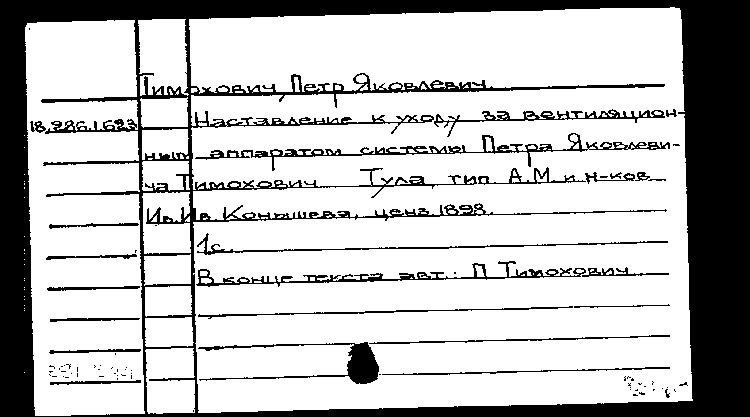 Тимохович, Петр Яковлевич.
18.286.1.623 Наставление к уходу за вентиляцион-
ным аппаратом системы Петра Яковлеви-
ча Тимохович Тула, тип. А.М. и н-ков
Ив.Ив. Конышева, ценз 1898.
1с.
В конце текста авт.: П Тимохович